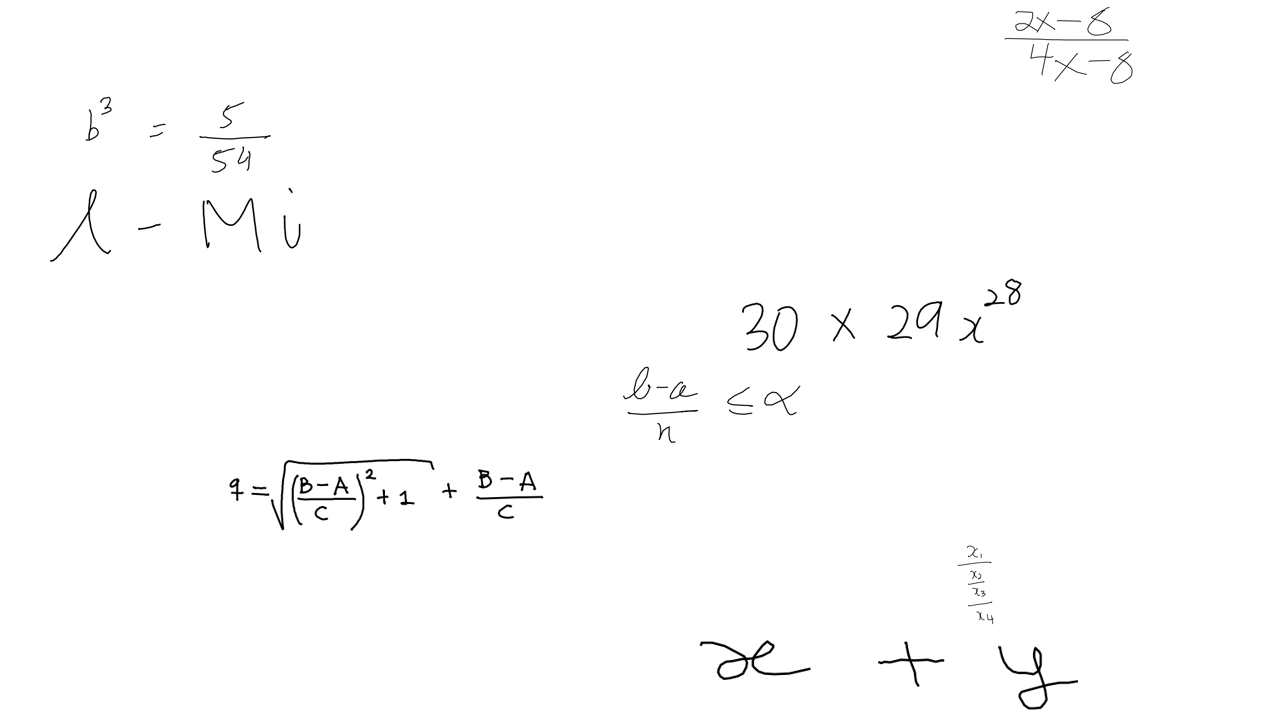 \frac{2x-8}{4x-8}
b^3 = \frac{5}{54}
\lambda - Mi
30 \times 29x^{28}
\frac{b-a}{n} \leq \alpha
q = \sqrt{\left(\frac{B-A}{C}\right)^2 + 1} + \frac{B-A}{C}
\frac{x_1}{\frac{\frac{x_2}{x_3}}{x_4}}
x + y